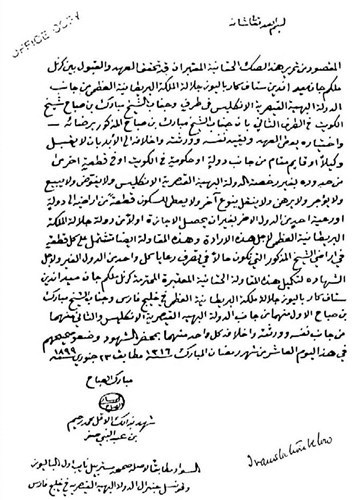 OFFICE COPY
بسم الله تعالى شأنه
المقصود من تحرير هذا الصك الحقانية المعتبر ان قد تحقق العهد والقبول بين كرنل
ملكم جان ميد اندين ستاف كار باليوز جلالة الملكة البريطانية العظمى من جانب
الدولة البهية القيصرية الانكليس في طرف وجناب الشيخ مبارك بن صباح شيخ
الكويت في الطرف الثاني بان جناب الشيخ مبارك بن صباح المذكور برضائه
واختياره يعطى العهد ويقيد نفسه وورثته واخلافه الى الأبد بان لا يقبل
وكيلا او قايم مقام من جانب دولة او حكومة في الكويت او في قطعة اخرى
من حدوده بغير رخصة الدولة البهية القيصرية الانكليس ولا يفوض ولا يبيع
ولا يؤجر ولا يرهن ولا ينقل بنوع آخر ولا يعطى للسكون قطعة من اراضيه الى دولة
او رعية احد من الدول الاخر بغير ان يحصل الاجازة اولا من دولة جلالة الملكة
البريطانية العظمى لاجل هذه الارادة وهذه المقاولة ايضا تشتمل على كل قطعة
من اراضي الشيخ المذكور التي يكون حالا في تصرف رعايا كل واحد من الدول الغير ولاجل
الشهادة لتكميل هذه المقاولة الحقانية المعتبرة المحترمة كرنل ملكم جان ميد اندين
ستاف كار باليوز جلالة الملكة البريطانية العظمى في خليج فارس وجناب الشيخ مبارك
بن صباح الاول منهما من جانب الدولة البهية القيصرية الانكليس والثاني منهما
من جانب نفسه وورثته واخلافه كل واحد منهما بمحضر الشهود وضعوا صحهم
في هذا اليوم العاشر من شهر رمضان المبارك ١٣١٦ مطابق ٢٣ جنوري ١٨٩٩
مبارك الصباح
شهد بذلك الاقل محمد رحيم
بن عبد النبي صفر
السواد مطابق الاصل
وقونسل جنرال الدولة البهية القيصرية في خليج فارس